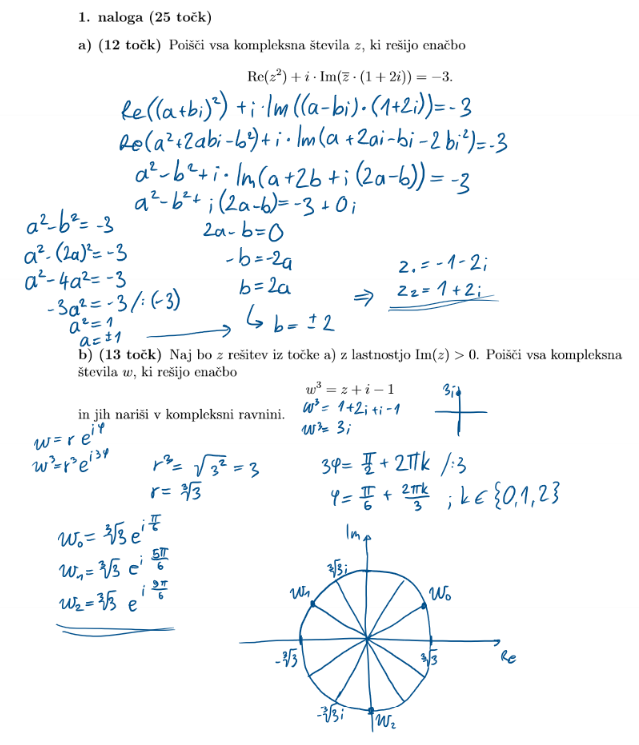 1. naloga (25 točk)
a) (12 točk) Poišči vsa kompleksna števila z, ki rešijo enačbo
Re(z²) + i · Im(z̅ · (1 + 2i)) = −3.
Re((a+bi)²) + i·Im((a-bi)·(1+2i)) = -3
Re(a²+2abi-b²) + i·Im(a+2ai-bi-2bi²) = -3
a²-b² + i·Im(a+2b+i(2a-b)) = -3
a²-b² + i(2a-b) = -3+0i
a²-b² = -3
a²-(2a)² = -3
a²-4a² = -3
-3a² = -3 /:(-3)
a² = 1
a = ±1
2a-b = 0
-b = -2a
b = 2a
↳ b = ±2
⇒ z₁ = -1-2i
z₂ = 1+2i
b) (13 točk) Naj bo z rešitev iz točke a) z lastnostjo Im(z) > 0. Poišči vsa kompleksna
števila w, ki rešijo enačbo
w³ = z + i − 1
in jih nariši v kompleksni ravnini.
w³ = 1+2i+i-1
w³ = 3i
3i
w = r e^{iφ}
w³ = r³ e^{i3φ}
r³ = √3² = 3
r = ∛3
3φ = π/2 + 2πk /:3
φ = π/6 + 2πk/3 ; k ∈ {0,1,2}
w₀ = ∛3 e^{i π/6}
w₁ = ∛3 e^{i 5π/6}
w₂ = ∛3 e^{i 9π/6}
Im
∛3i
w₁
w₀
-∛3
∛3
Re
-∛3i
w₂